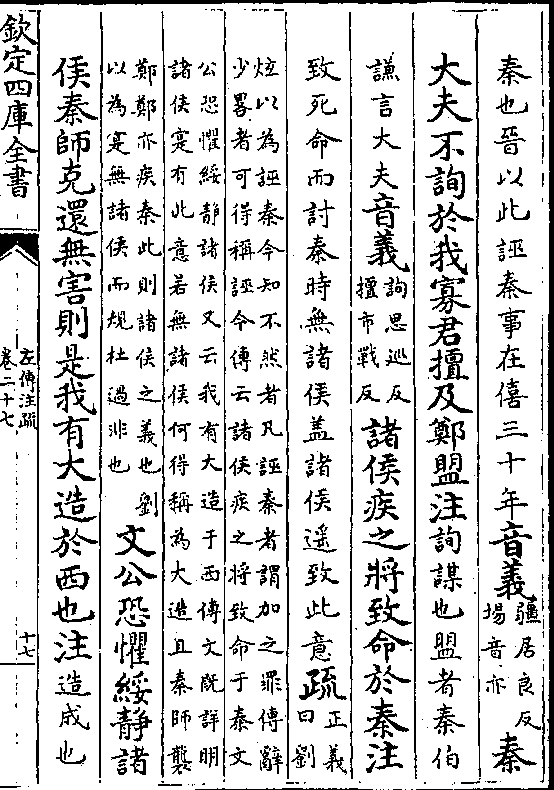 秦也晉以此誣秦事在僖三十年音義疆居良反場音亦秦
大夫不詢於我寡君擅及鄭盟注詢謀也盟者秦伯
謙言大夫音義詢思巡反擅市戰反諸侯疾之將致命於秦注
致死命而討秦時無諸侯盖諸侯遥致此意疏正義曰劉
炫以為誣秦今知不然者凡誣秦者謂加之罪傳辭
少畧者可得稱誣今傳云諸侯疾之將致命于秦文
公恐懼綏靜諸侯又云我有大造于西傳文既詳明
諸侯寔有此意若無諸侯何得稱為大造且秦師襲
鄭鄭亦疾秦此則諸侯之義也劉
以為寔無諸侯而規杜過非也
文公恐懼綏靜諸
侯秦師克還無害則是我有大造於西也注造成也
欽定四庫全書
左傳注疏
卷二十七
十七